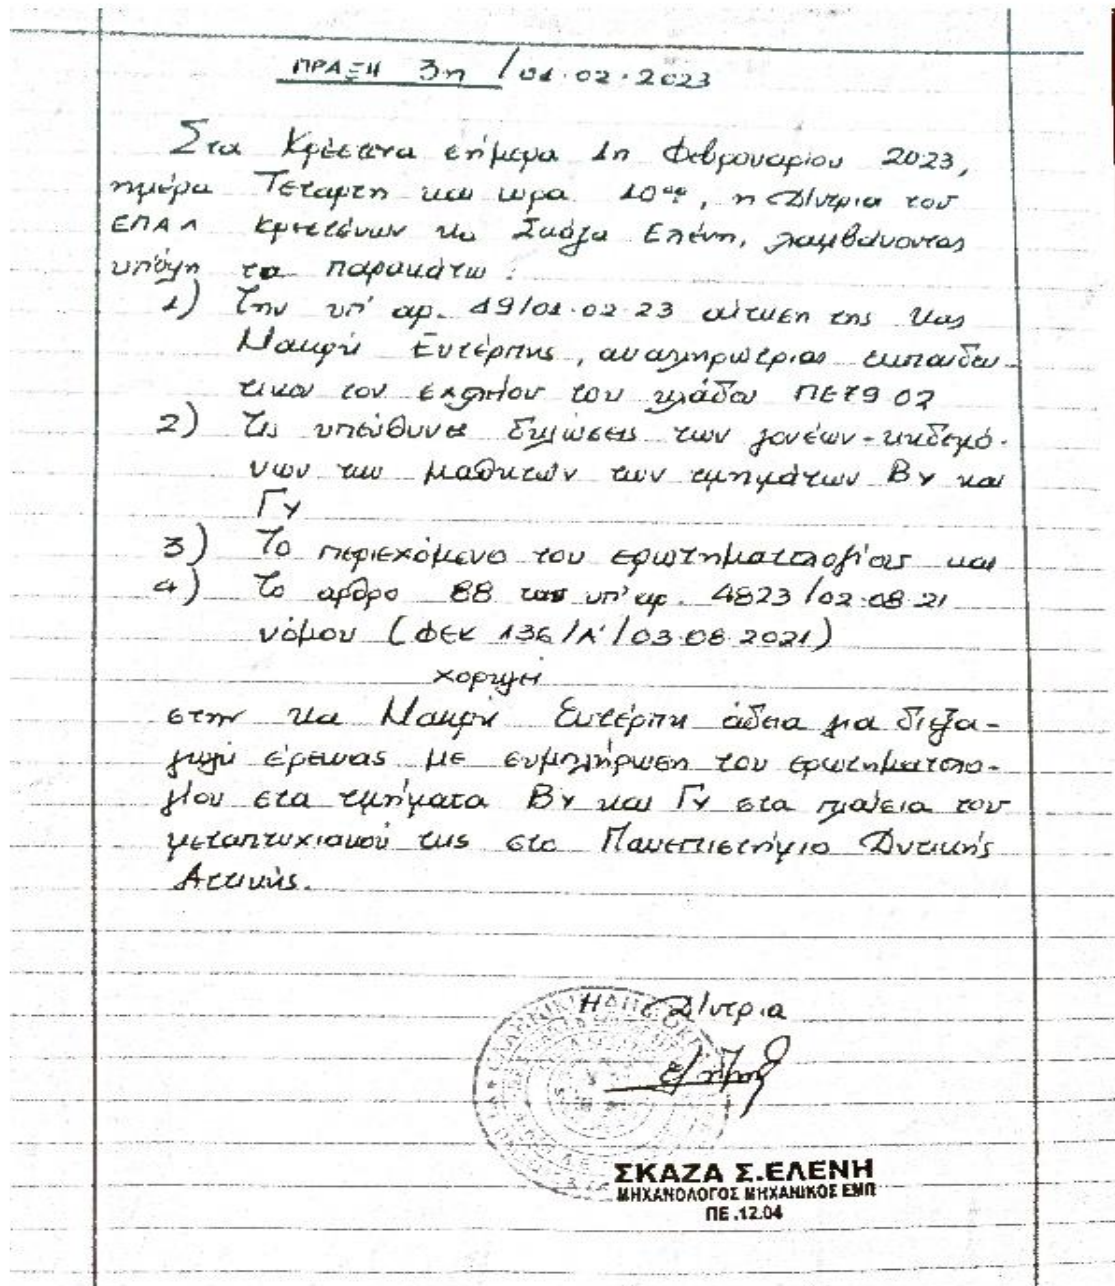 ΠΡΑΞΗ 3η / 01.02.2023
Στα Κρέστενα σήμερα 1η Φεβρουαρίου 2023,
ημέρα Τετάρτη και ώρα 10πμ, η Δ/ντρια του
ΕΠΑΛ Κρεστένων κα Σκάζα Ελένη, λαμβάνοντας
υπόψη τα παρακάτω:
1) Την υπ' αρ. 49/01.02.23 αίτηση της κας
Μακρή Ευτέρπης, αναπληρώτριας εκπαιδευ-
τικού του σχολείου του κλάδου ΠΕ79.02
2) Τις υπεύθυνες δηλώσεις των γονέων-κηδεμό-
νων των μαθητών των τμημάτων Βγ και
Γγ
3) Το περιεχόμενο του ερωτηματολογίου και
4) Το άρθρο 88 του υπ' αρ. 4823/02.08.21
νόμου (ΦΕΚ 136/Α'/03.08.2021)
χορηγεί
στην κα Μακρή Ευτέρπη άδεια για διεξα-
γωγή έρευνας με συμπλήρωση του ερωτηματολο-
γίου στα τμήματα Βγ και Γγ στα πλαίσια του
μεταπτυχιακού της στο Πανεπιστήμιο Δυτικής
Αττικής.
Η Δ/ντρια
ΣΚΑΖΑ Σ.ΕΛΕΝΗ
ΜΗΧΑΝΟΛΟΓΟΣ ΜΗΧΑΝΙΚΟΣ ΕΜΠ
ΠΕ.12.04